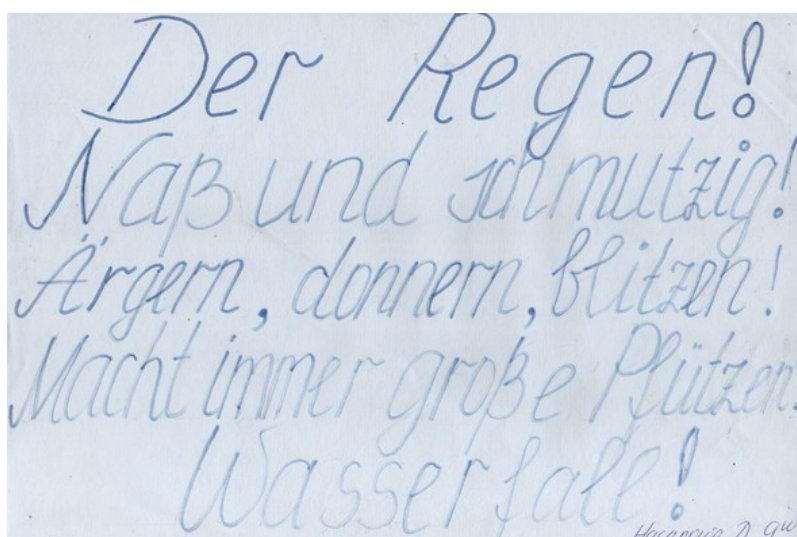 Der Regen!
Naß und schmutzig!
Ärgern, donnern, blitzen!
Macht immer große Pfützen.
Wasserfall!